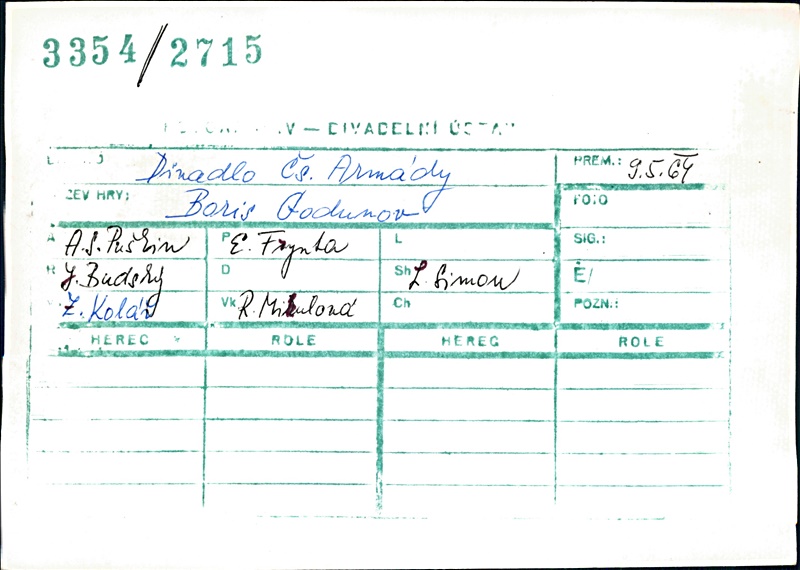 3354/2715
V — DIVADELNÍ ÚSTAV
Divadlo Čs. Armády PREM.: 9.5.64
ZEV HRY: Boris Godunov FOTO
A A.S. Puškin P E. Frynta L SIG.:
R J. Budský D Sh L. Simon Č/
Z. Kolář Vk R. Mikulová Ch POZN.:
HEREC ROLE HEREC ROLE